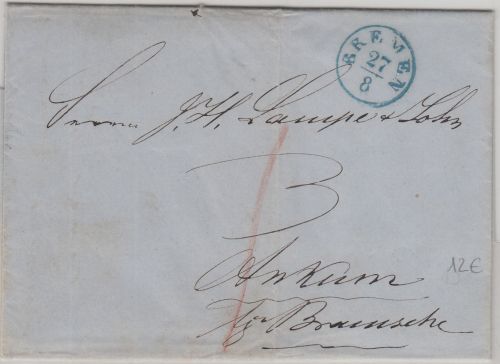 BREMEN
27/8
Herrn J. H. Lampe & Sohn
3
Ankum
Bramsche
12€